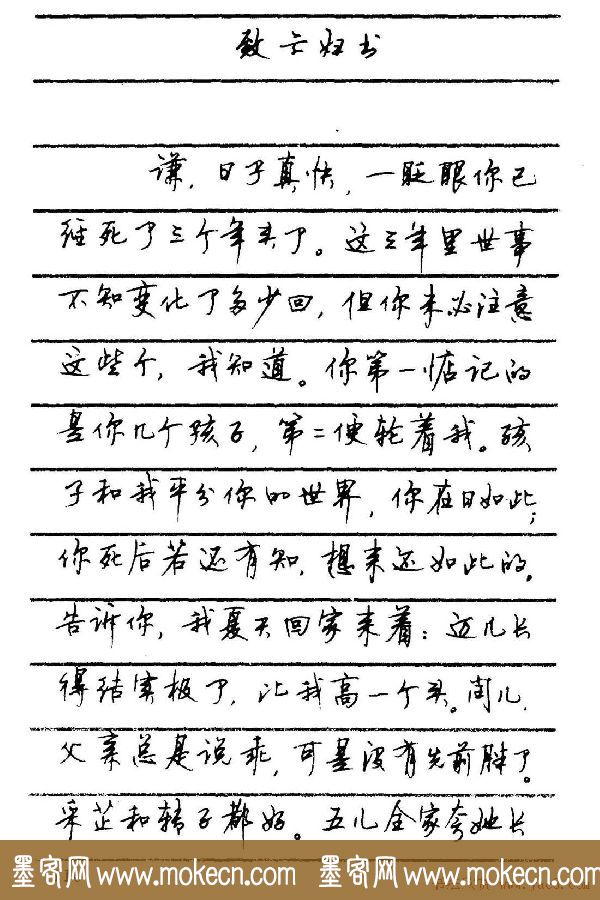 致亡妇书
谦，日子真快，一眨眼你已
经死了三个年头了。这三年里世事
不知变化了多少回，但你未必注意
这些个，我知道。你第一惦记的
是你几个孩子，第二便轮着我。孩
子和我平分你的世界，你在日如此；
你死后若还有知，想来还如此的。
告诉你，我夏天回家来着：迈儿长
得结实极了，比我高一个头。闰儿，
父亲总是说乖，可是没有先前胖了。
采芷和转子都好。五儿全家夸她长
墨客网 www.mokecn.com 墨客网 www.mokecn.com